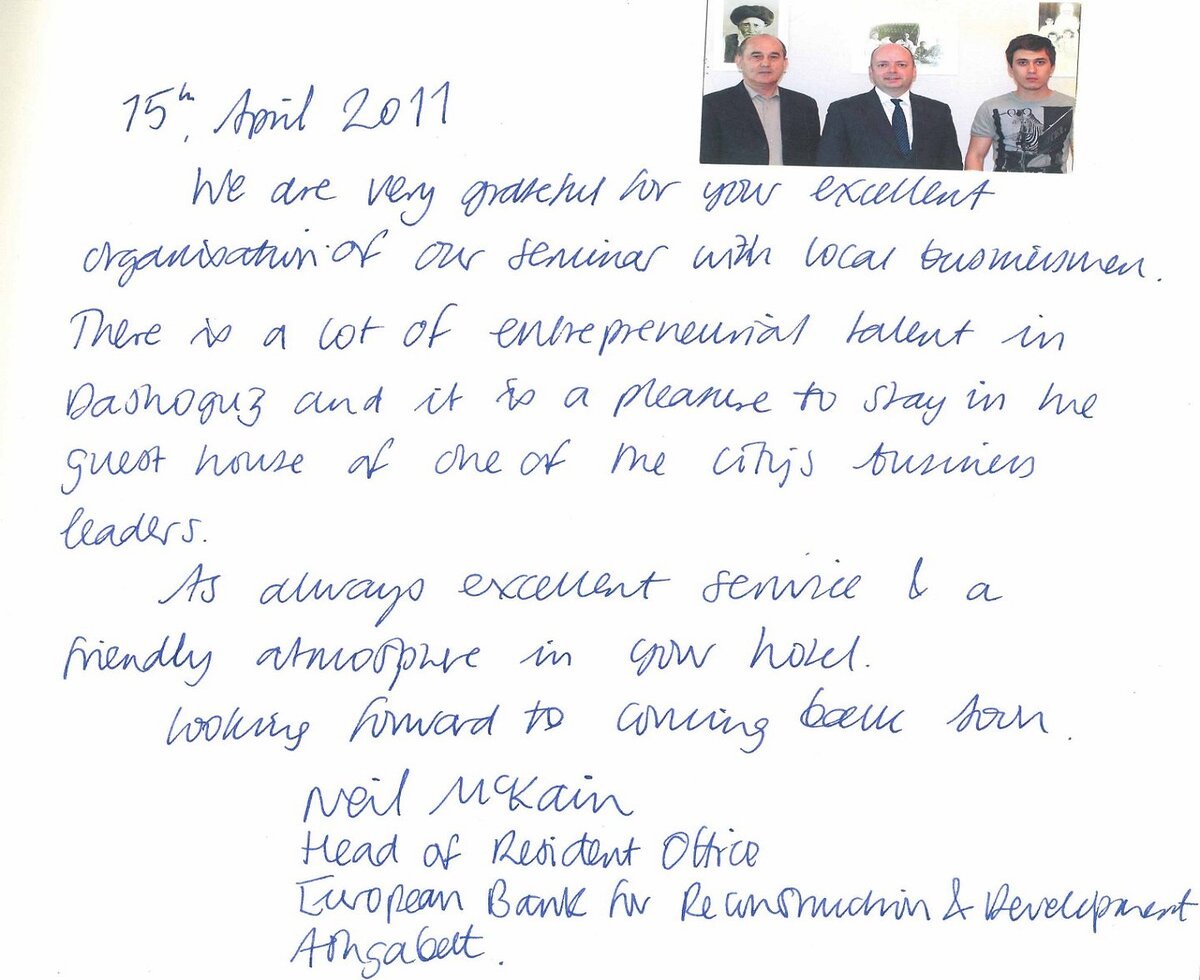 15th. April 2011
We are very grateful for your excellent
organisation of our seminar with local businessmen.
There is a lot of entrepreneurial talent in
Dashoguz and it is a pleasure to stay in the
guest house of one of the city's business
leaders.
As always excellent service & a
friendly atmosphere in your hotel.
Looking forward to coming back soon.
Neil McKain
Head of Resident Office
European Bank for Reconstruction & Development
Ashgabat.